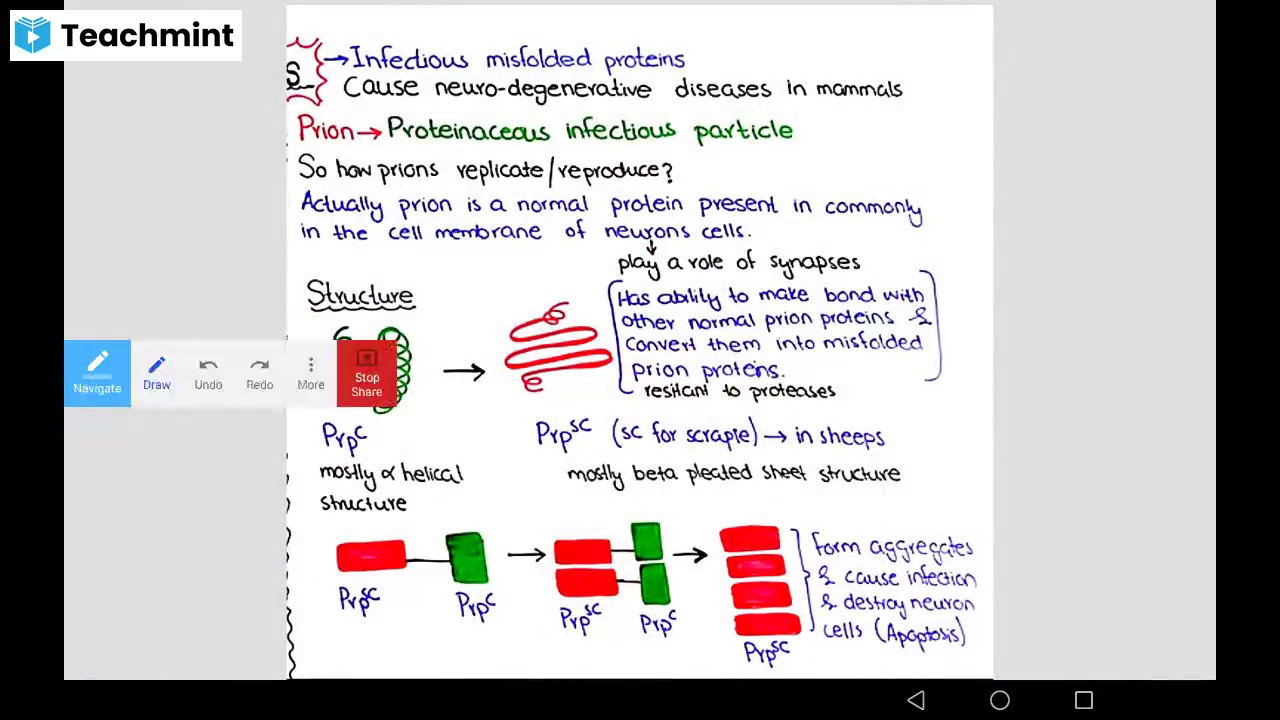 Teachmint
S
→ Infectious misfolded proteins
Cause neuro-degenerative diseases in mammals
Prion → Proteinaceous infectious particle
So how prions replicate/reproduce?
Actually prion is a normal protein present in commonly
in the cell membrane of neurons cells.
play a role of synapses
Structure
Has ability to make bond with
other normal prion proteins &
convert them into misfolded
prion proteins.
resitant to proteases
Navigate
Draw
Undo
Redo
More
Stop
Share
Prp^c
Prp^sc (sc for scrapie) → in sheeps
mostly α helical
structure
mostly beta pleated sheet structure
Prp^sc
Prp^c
Prp^sc
Prp^c
Prp^sc
Form aggregates
& cause infection
& destroy neuron
cells (Apoptosis)